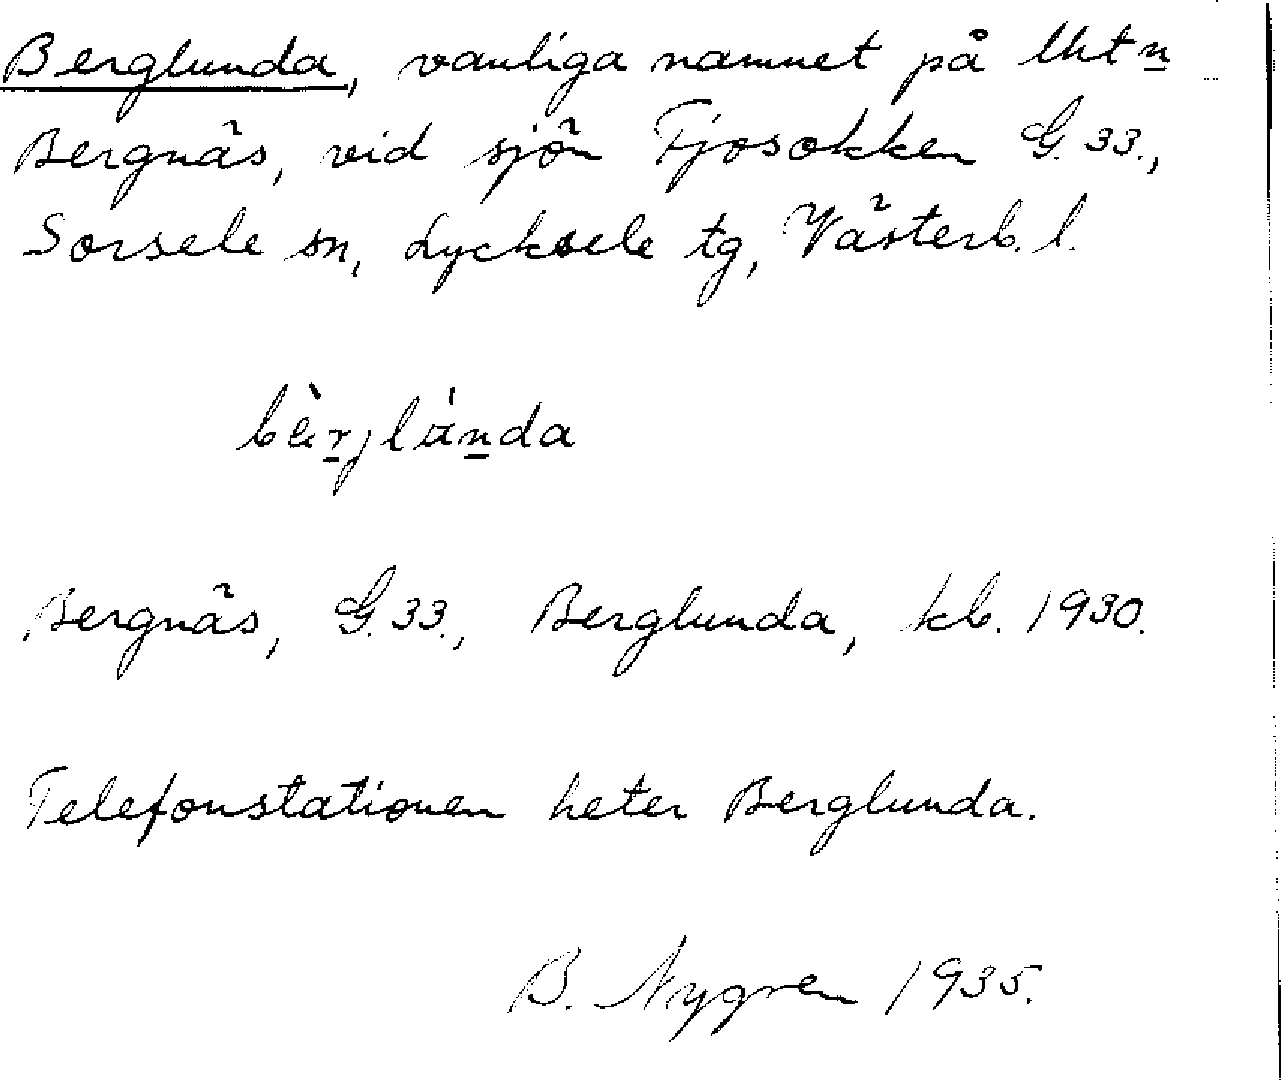 Berglunda, vanliga namnet på lht n
Bergnäs, vid sjön Fjosokken G. 33.,
Sorsele sn, Lycksele tg, Västerb. l.
Bergnäs, G. 33., Berglunda, kb. 1930.
Telefonstationen heter Berglunda.
B. Nygren 1935.